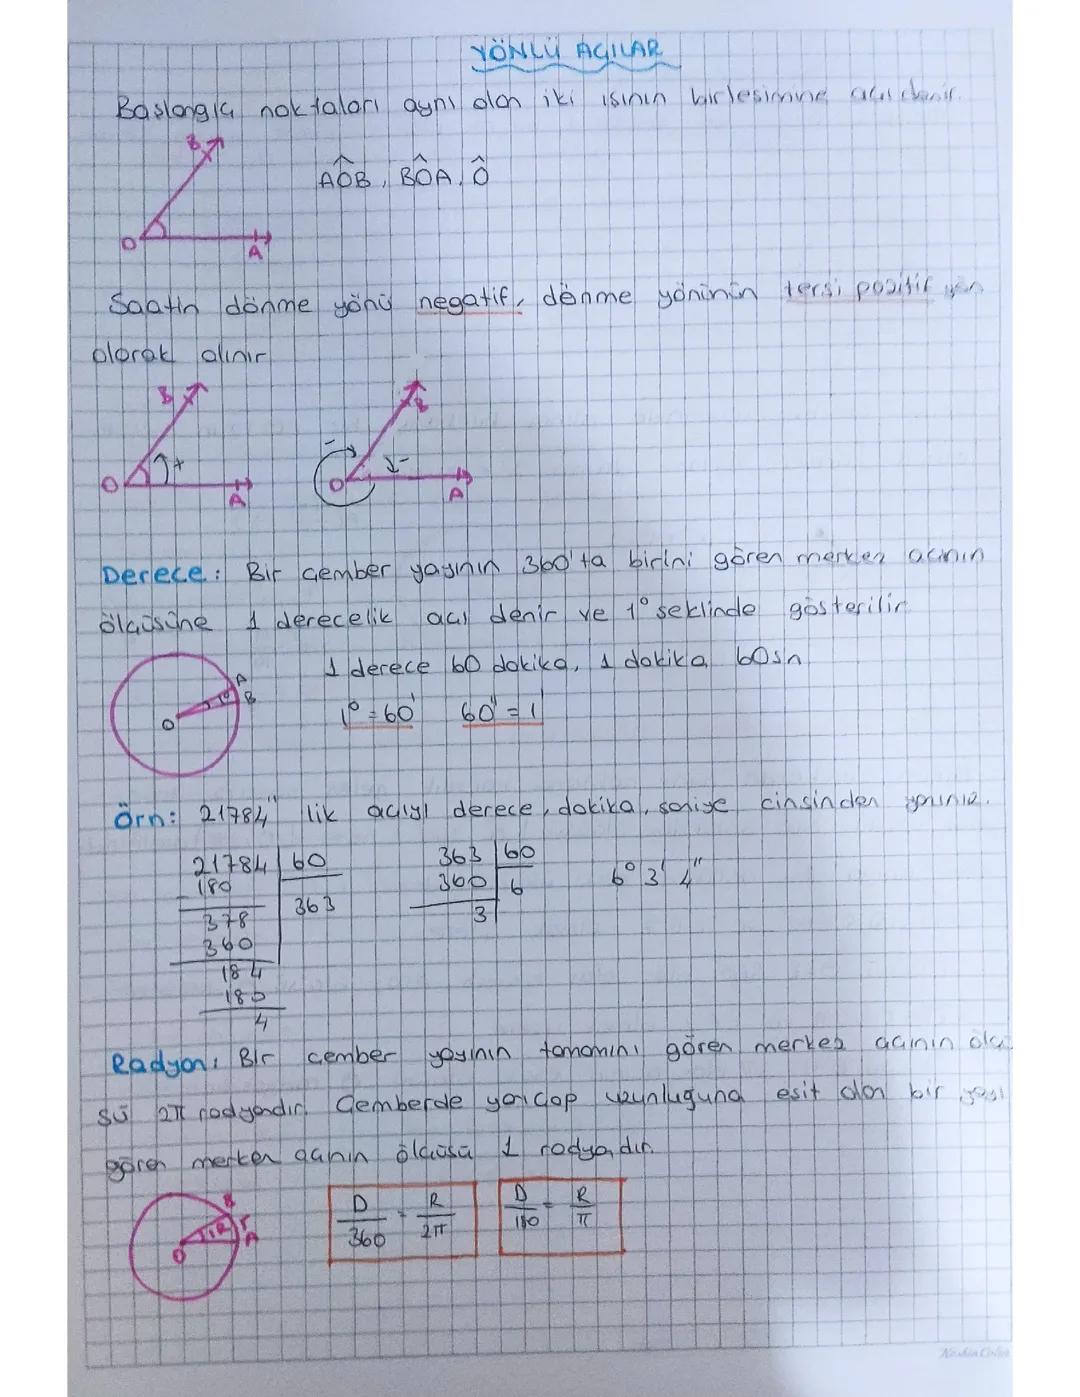 YÖNLÜ AÇILAR
Başlangıç noktaları aynı olan iki ışının birleşimine açı denir.
B
AÔB, BÔA, Ô
O
A
Saatin dönme yönü negatif, dönme yönünün tersi pozitif yön
olarak alınır
B
B
+
-
-
O
A
O
A
Derece: Bir çember yayının 360'ta birini gören merkez açının
ölçüsüne 1 derecelik açı denir ve 1° şeklinde gösterilir
1 derece 60 dakika, 1 dakika 60sn
A
B
O
1° = 60' 60" = 1'
Örn: 21784" lik açıyı derece, dakika, saniye cinsinden yazınız.
21784 60
180
363
378
360
184
180
4
363 60
360 6
3
6° 3' 4"
Radyan: Bir çember yayının tamamını gören merkez açının ölçü
sü 2π radyandır. Çemberde yarıçap uzunluğuna eşit olan bir yayı
gören merkez açının ölçüsü 1 radyandır.
B
r
1R
O
A
D/360 = R/2π
D/180 = R/π